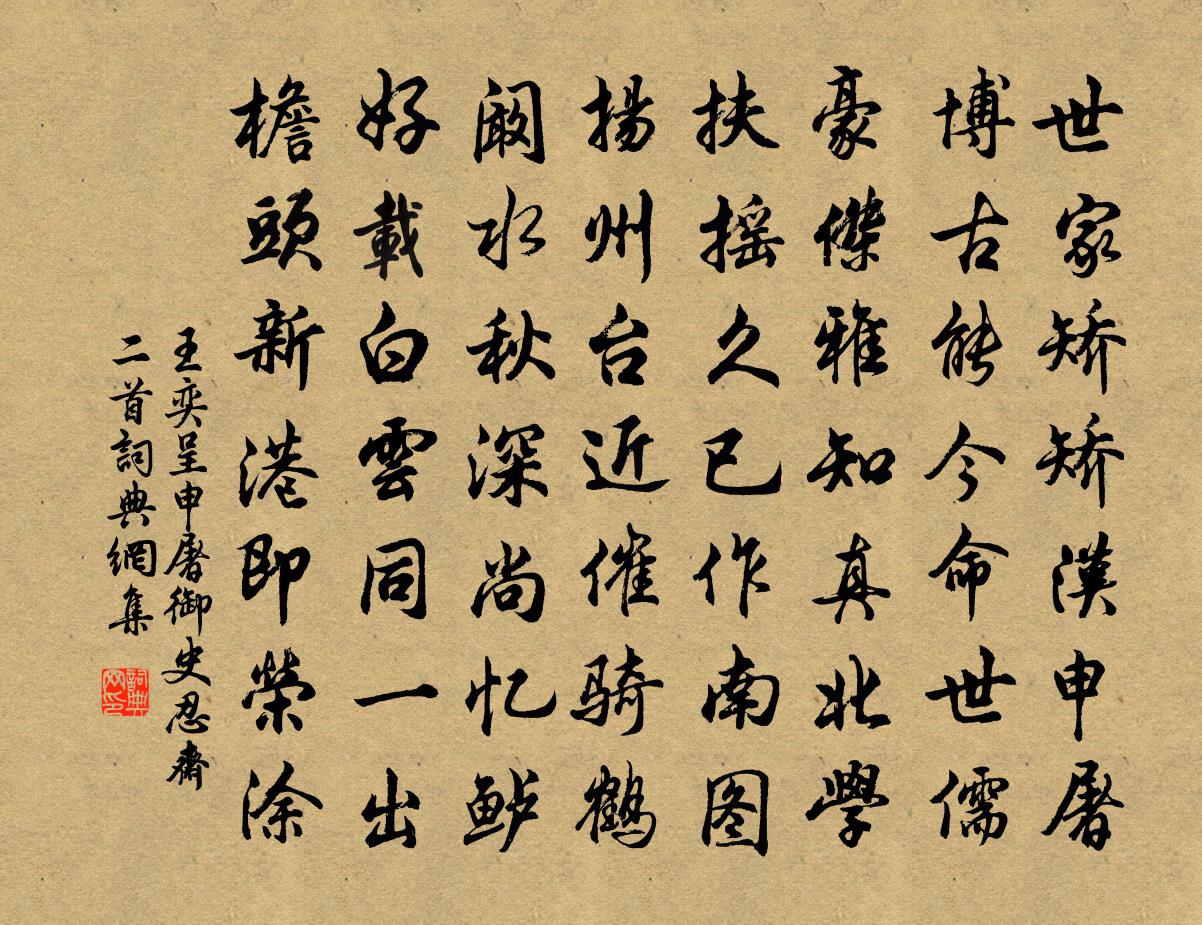 世家矫矫漢申屠
博古能今命世儒
豪傑雅知真北學
扶摇久已作南图
揚州台近催骑鶴
阚水秋深尚忆鲈
好載白雲同一出
檐頭新港即榮涂
王奕呈申屠御史忍齋
二首詞典網集
詞典
网印